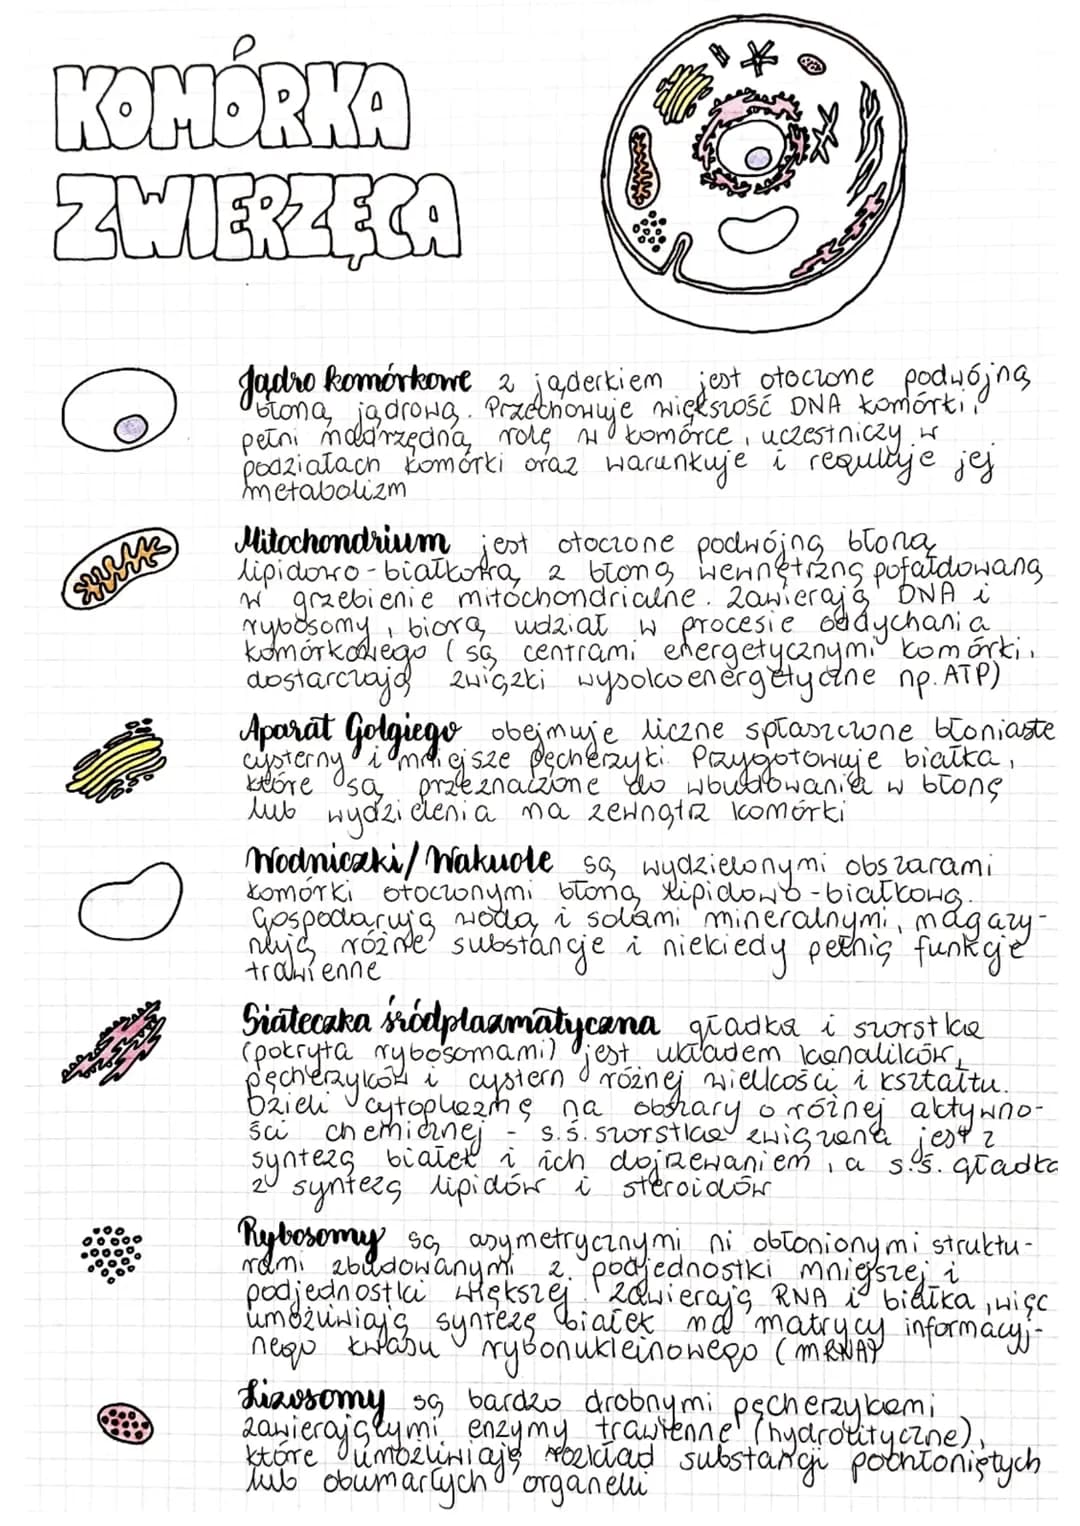 KOMÓRKA
ZWIERZĘCA
Jądro komórkowe z jąderkiem jest otoczone podwójną
błoną jądrową. Przechowuje większość DNA komórki,
pełni nadrzędną rolę w komórce, uczestniczy w
podziałach komórki oraz warunkuje i reguluje jej
metabolizm
Mitochondrium jest otoczone podwójną błoną
lipidowo-białkową, z błoną wewnętrzną pofałdowaną
w grzebienie mitochondrialne. Zawierają DNA i
rybosomy, biorą udział w procesie oddychania
komórkowego (są centrami energetycznymi komórki,
dostarczają związki wysokoenergetyczne np. ATP)
Aparat Golgiego obejmuje liczne spłaszczone błoniaste
cysterny i mniejsze pęcherzyki. Przygotowuje białka,
które są przeznaczone do wbudowania w błonę
lub wydzielenia na zewnątrz komórki
Wodniczki/Wakuole są wydzielonymi obszarami
komórki otoczonymi błoną lipidowo-białkową.
Gospodarują wodą i solami mineralnymi, magazy-
nują różne substancje i niekiedy pełnią funkcje
trawienne
Siateczka śródplazmatyczna gładka i szorstka
(pokryta rybosomami) jest układem kanalików,
pęcherzyków i cystern różnej wielkości i kształtu.
Dzieli cytoplazmę na obszary o różnej aktywno-
ści chemicznej - s.ś. szorstka związana jest z
syntezą białek i ich dojrzewaniem, a s.ś. gładka
z syntezą lipidów i steroidów
Rybosomy są asymetrycznymi ni obłonionymi struktu-
rami zbudowanymi z podjednostki mniejszej i
podjednostki większej. Zawierają RNA i białka, więc
umożliwiają syntezę białek na matrycy informacyj-
nego kwasu rybonukleinowego (mRNA)
Lizosomy są bardzo drobnymi pęcherzykami
zawierającymi enzymy trawienne (hydrolityczne),
które umożliwiają rozkład substancji pochłoniętych
lub obumarłych organelli